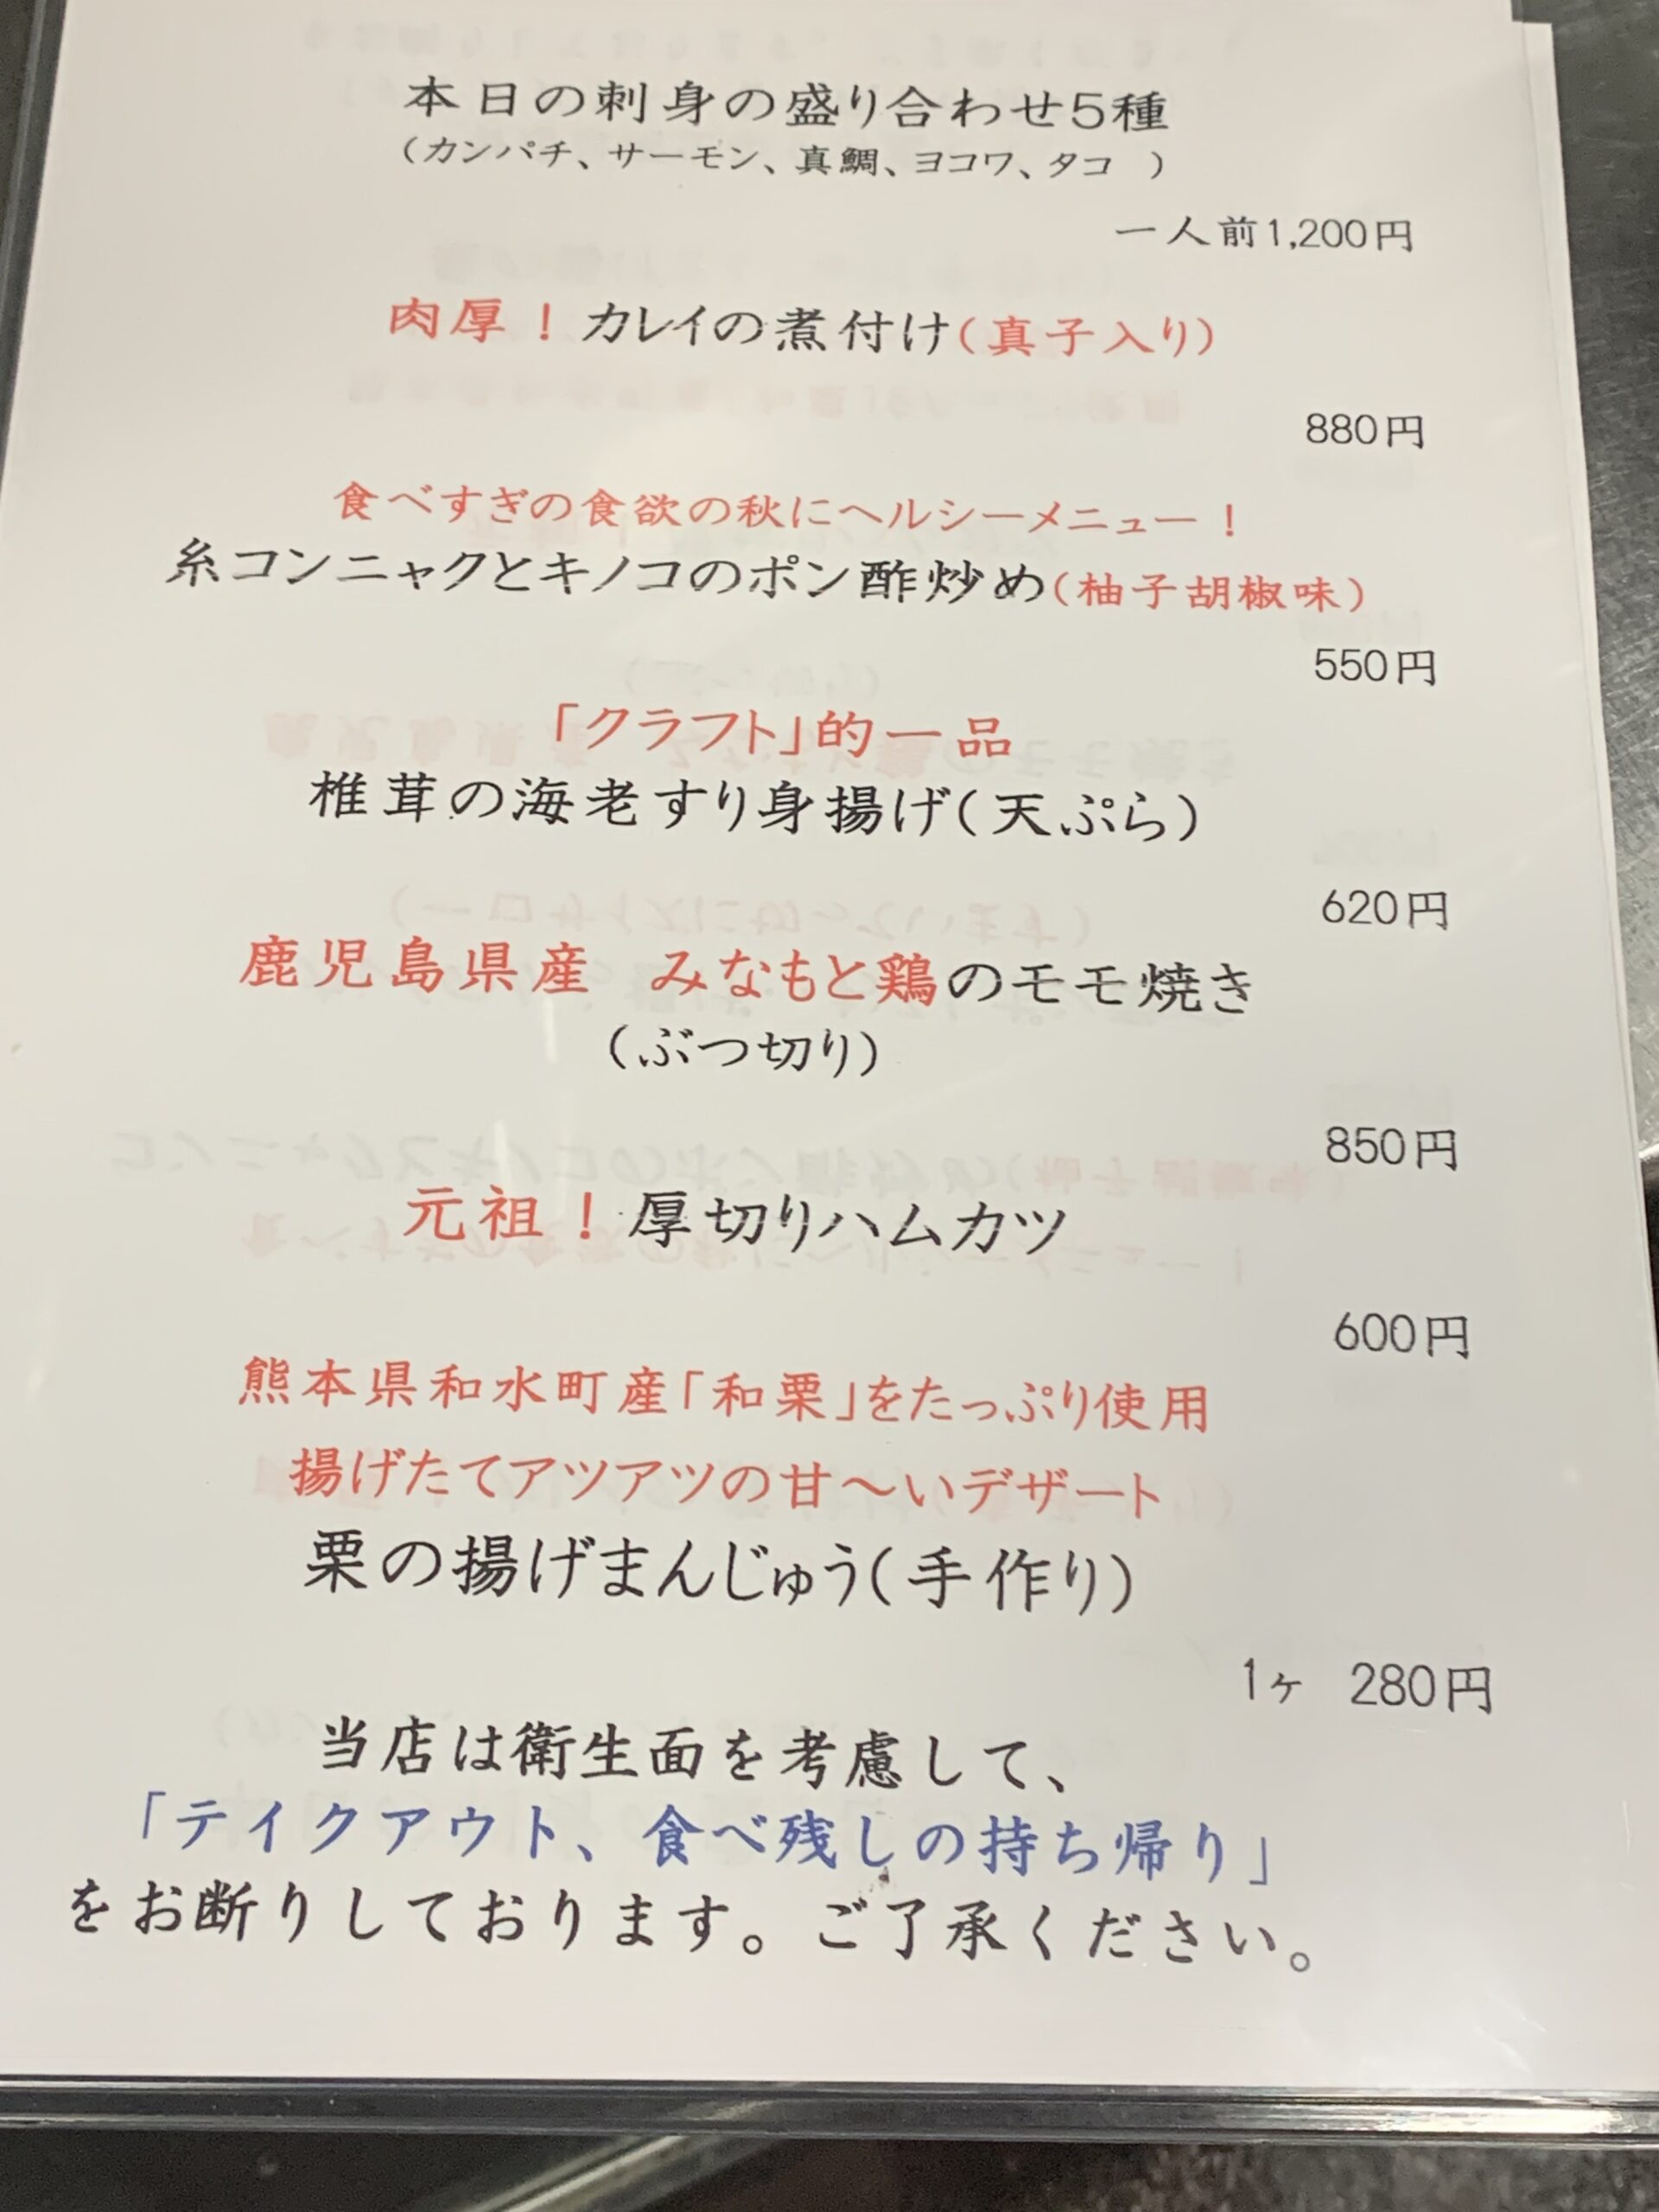 本日の刺身の盛り合わせ5種
(カンパチ、サーモン、真鯛、ヨコワ、タコ )
一人前1,200円
肉厚!カレイの煮付け(真子入り)
880円
食べすぎの食欲の秋にヘルシーメニュー!
糸コンニャクとキノコのポン酢炒め(柚子胡椒味)
550円
「クラフト」的一品
椎茸の海老すり身揚げ(天ぷら)
620円
鹿児島県産 みなもと鶏のモモ焼き
(ぶつ切り)
850円
元祖!厚切りハムカツ
600円
熊本県和水町産「和栗」をたっぷり使用
揚げたてアツアツの甘~いデザート
栗の揚げまんじゅう(手作り)
1ヶ 280円
当店は衛生面を考慮して、
「テイクアウト、食べ残しの持ち帰り」
をお断りしております。ご了承ください。